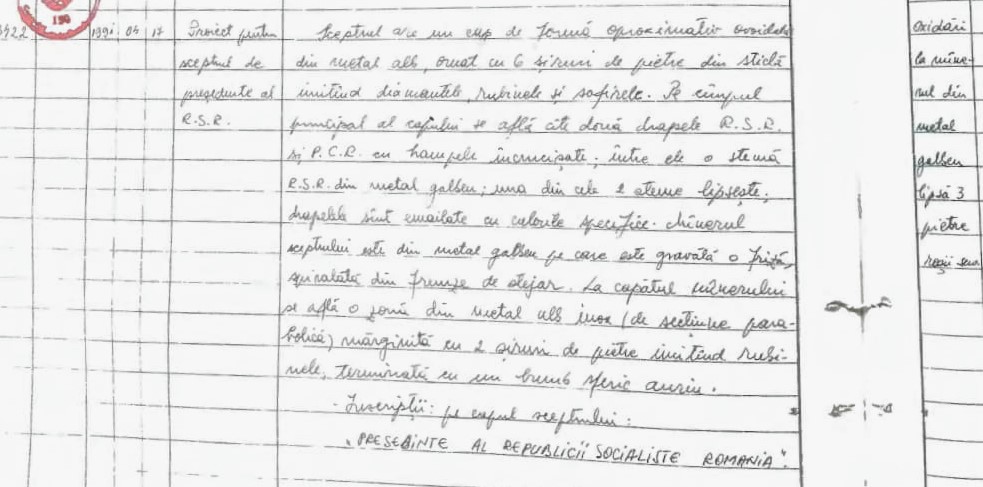 190
3422 1991 04 17
Proiect pentru
sceptrul de
președinte al
R.S.R.
Sceptrul are un cap de formă aproximativ ovoidală
din metal alb, ornat cu 6 șiruri de pietre din sticlă
imitînd diamantele, rubinele și safirele. Pe cîmpul
principal al capului se află cîte două drapele R.S.R.
și P.C.R. cu hampele încrucișate; între ele o stemă
R.S.R. din metal galben; una din cele 2 steme lipsește;
drapelele sînt emailate cu culorile specifice. Mînerul
sceptrului este din metal galben pe care este gravată o friză,
spiralată din frunze de stejar. La capătul mînerului
se află o zonă din metal alb inox (de secțiune para-
bolică) mărginită cu 2 șiruri de pietre imitînd rubi-
nele, terminată cu un bumb sferic auriu.
- Inscripții: pe capul sceptrului:
"PRESEDINTE AL REPUBLICII SOCIALISTE ROMANIA".
oxidări
la mîne-
rul din
metal
galben
lipsă 3
pietre
roșii